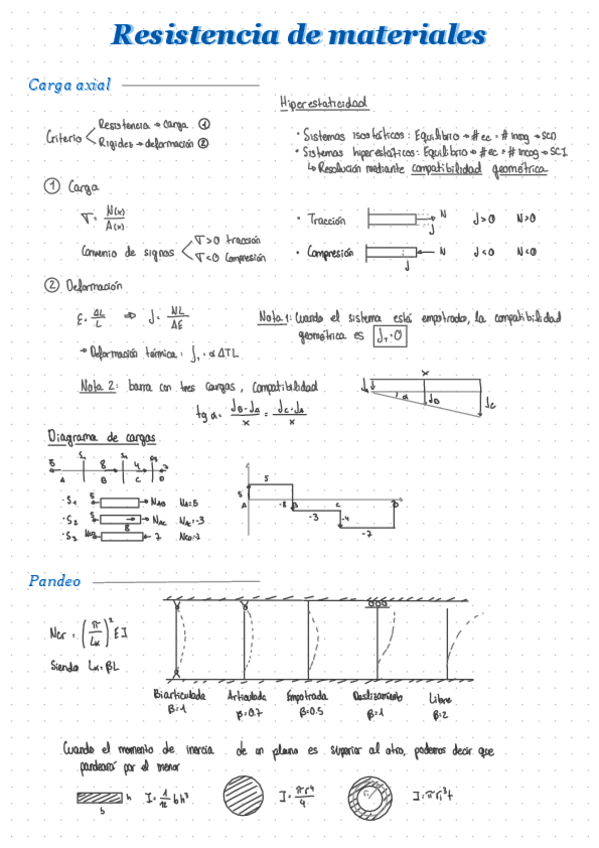 Resistencia de materiales
Carga axial
Hiperestaticidad
Criterio
Resistencia → carga ①
Rigidez → deformación ②
· Sistemas isostáticos: Equilibrio → # ec = # incog → SCD
· Sistemas hiperestáticos: Equilibrio → # ec ≠ # incog → SCI
↳ Resolución mediante compatibilidad geométrica
① Carga
σ = N(x) / A(x)
Convenio de signos
σ>0 tracción
σ<0 Compresión
· Tracción N δ δ>0 N>0
· Compresión N δ δ<0 N<0
② Deformación
ε = ΔL / L ⇒ δ = NL / AE
Nota 1: Cuando el sistema está empotrado, la compatibilidad
geométrica es δT=0
→ Deformación térmica: δt = α ΔTL
Nota 2: barra con tres cargas, Compatibilidad
tg α = δB-δA / x = δC-δA / x
x
α δB δC
Diagrama de cargas
5 8 4 7
A B C D
· S1 5 NAB NA=5
· S2 5 8 NAC NAC=-3
· S3 7
5
5 A -8 B -3 C -4 -7 D
Pandeo
Ncr = (π / LK)² E I
Siendo LK = βL
Biarticulada Articulada Empotrada Deslizamiento Libre
β=1 β=0.7 β=0.5 β=1 β=2
Cuando el momento de inercia de un plano es superior al otro, podemos decir que
pandeará por el menor
h b I = 1/12 b h³ I = πr⁴ / 4 I = π r³ t